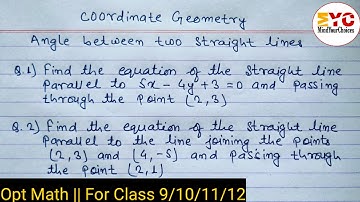 Coordinate Geometry
SYC
MindYourChoices
Angle between two straight lines
Q.1) Find the equation of the straight line
parallel to 5x - 4y + 3 = 0 and passing
through the point (2,3)
Q.2) Find the equation of the straight line
parallel to the line joining the points
(2,3) and (4,-5) and passing through
the point (2,1)
Opt Math || For Class 9/10/11/12